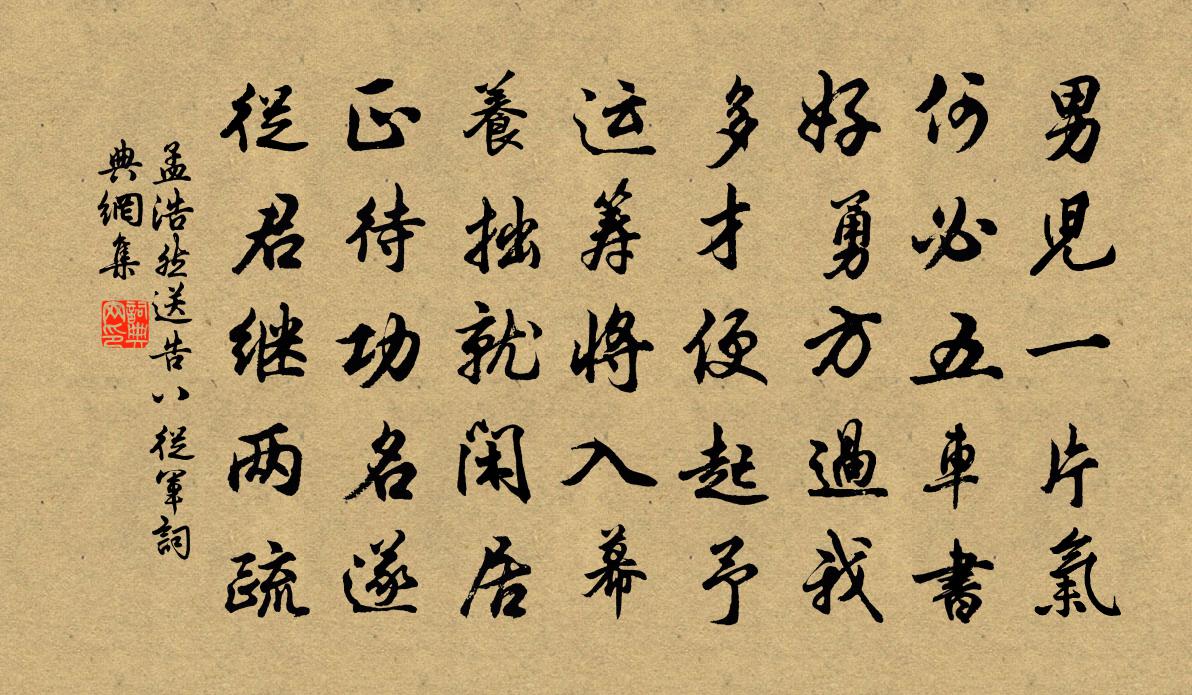 男児一片氣
何必五車書
好勇方過我
多才便起予
运筹將入幕
養拙就閑居
正待功名遂
從君继两疏
孟浩然送告八從軍詞
典網集
詞典
网印